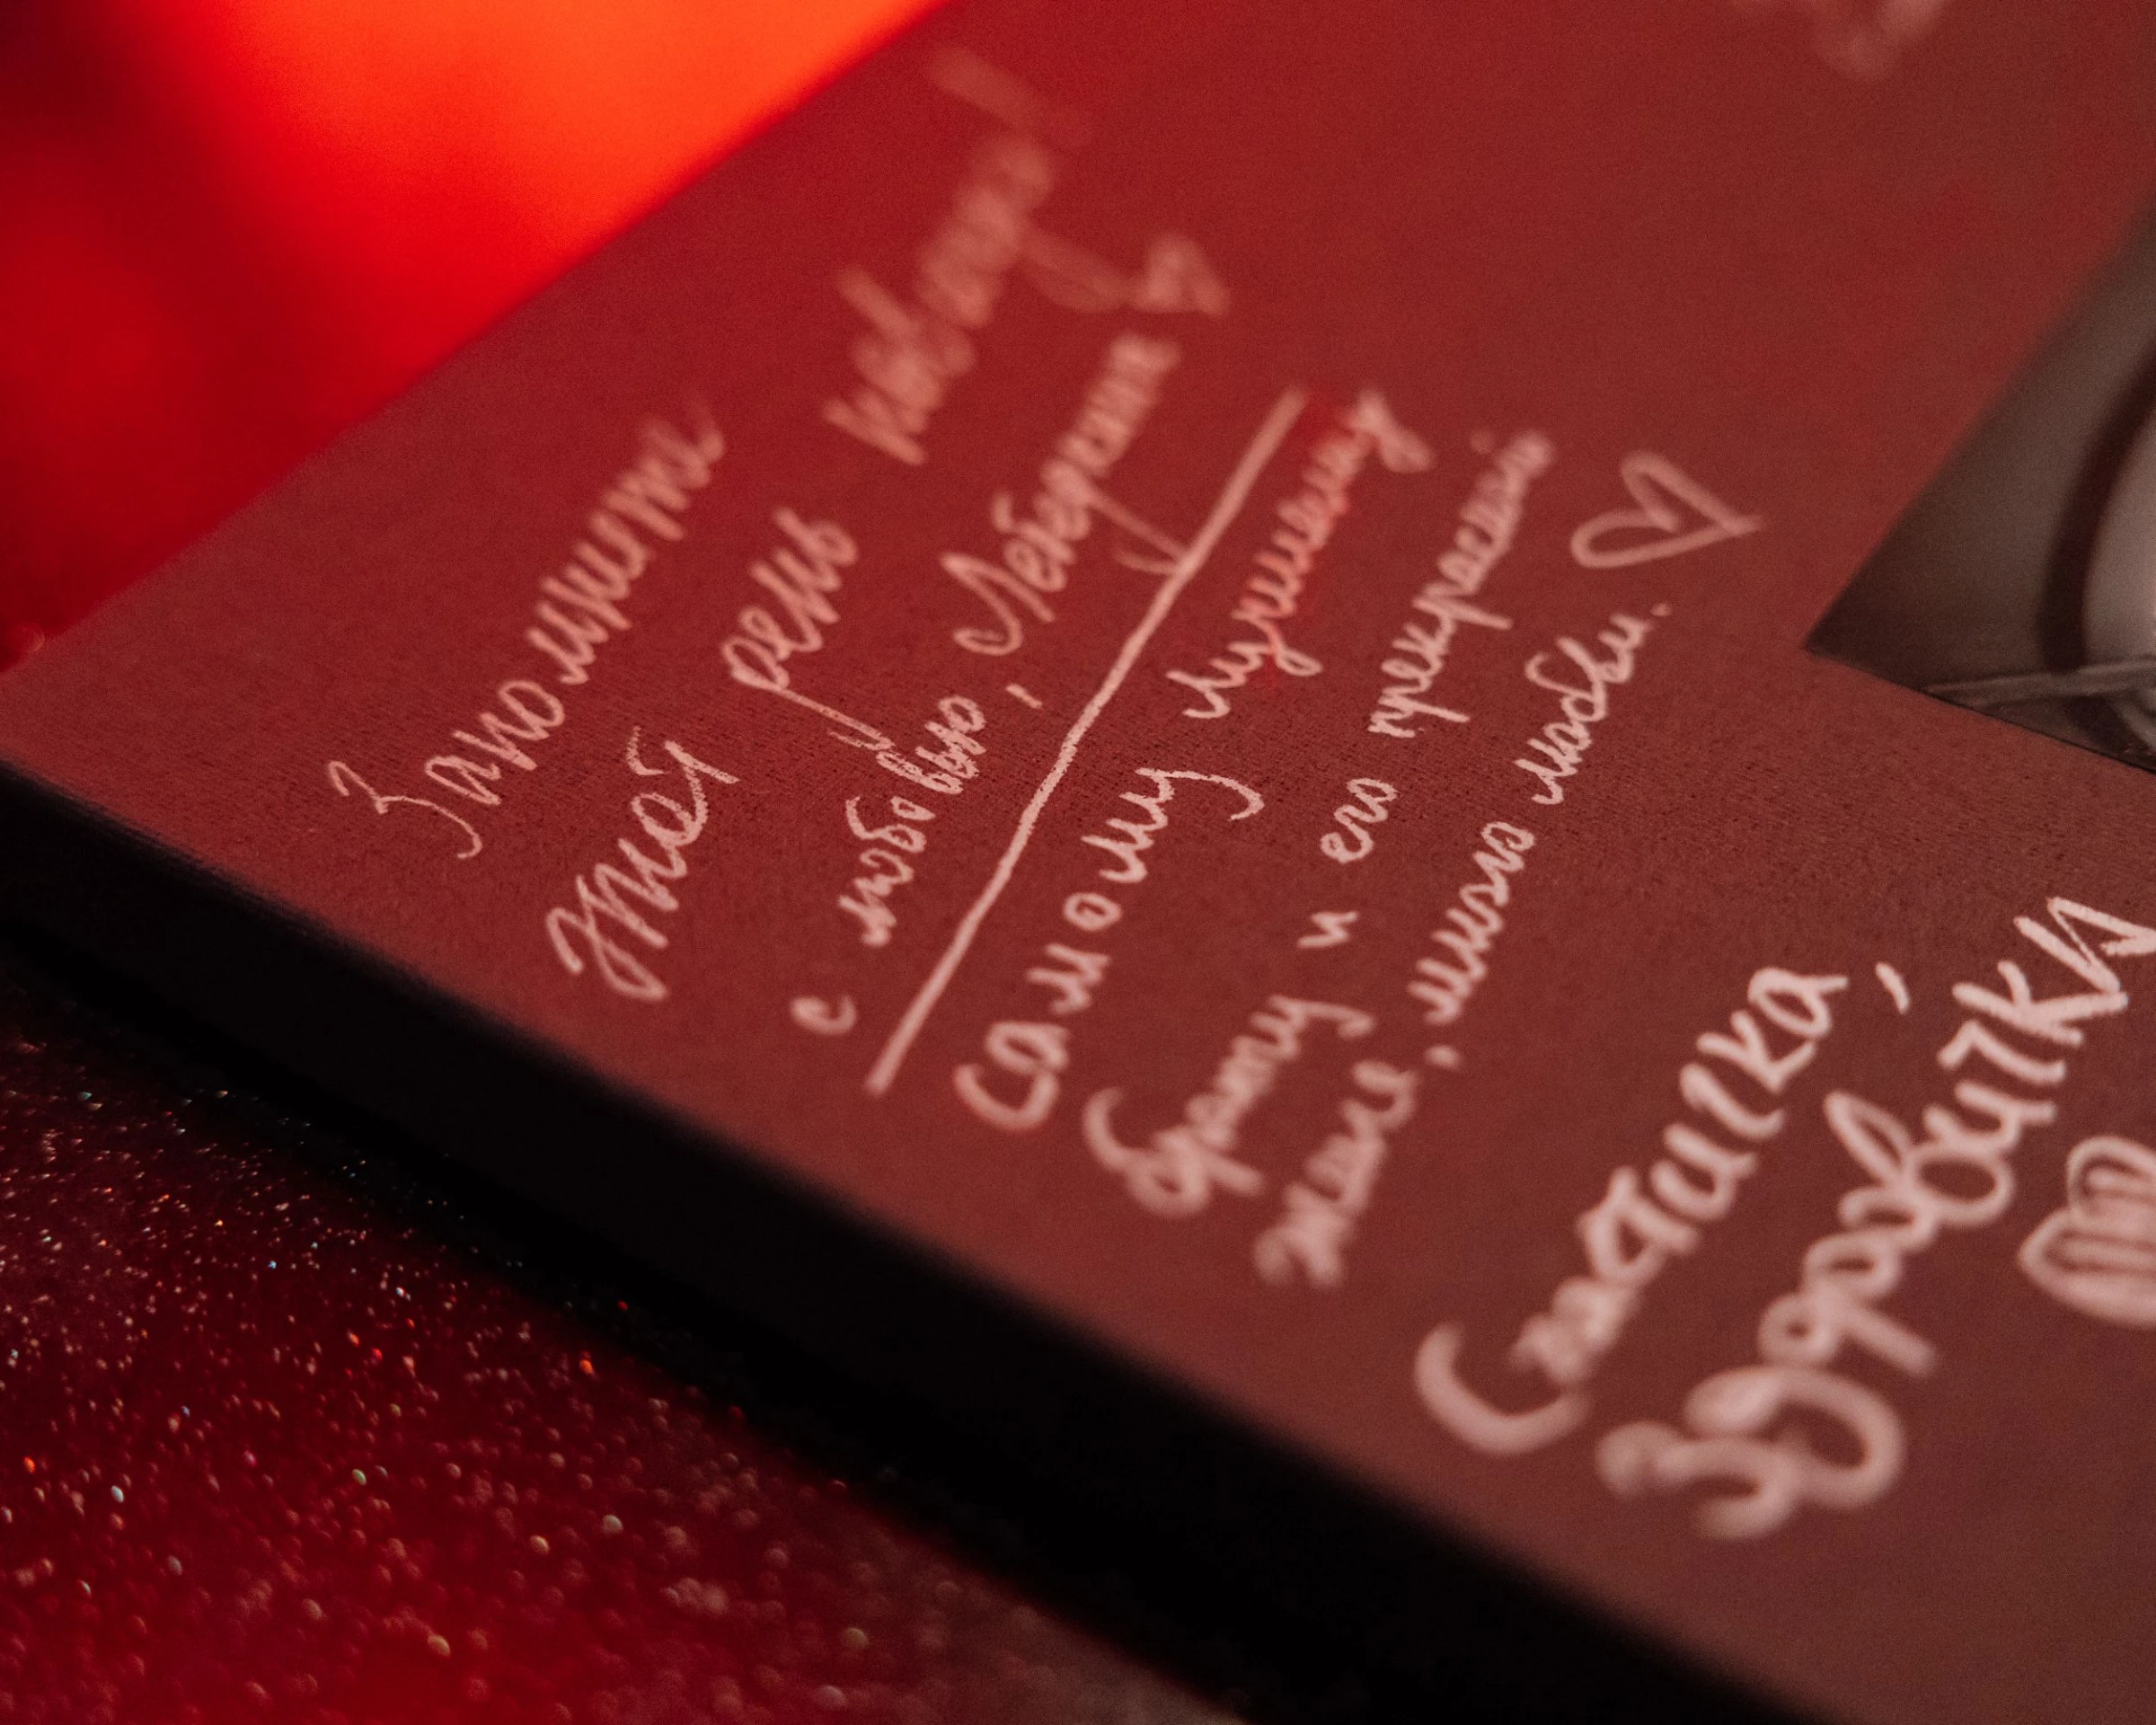 Запомните
этот день навсегда!
с любовью, Лебедкины
самому лучшему
брату и его прекрасной
жене, много любви.
Счастичка,
здоровичка